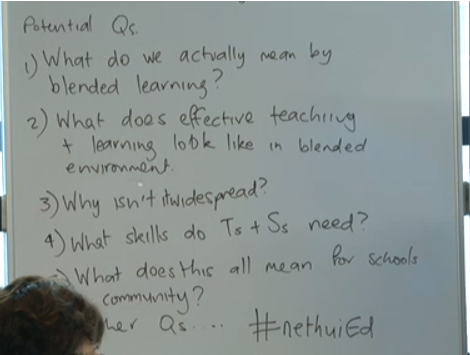 Potential Qs.
1) What do we actually mean by
blended learning?
2) What does effective teaching
+ learning look like in blended
environment.
3) Why isn't it widespread?
4) What skills do Ts + Ss need?
What does this all mean for schools
community?
Qs.... #nethuiEd